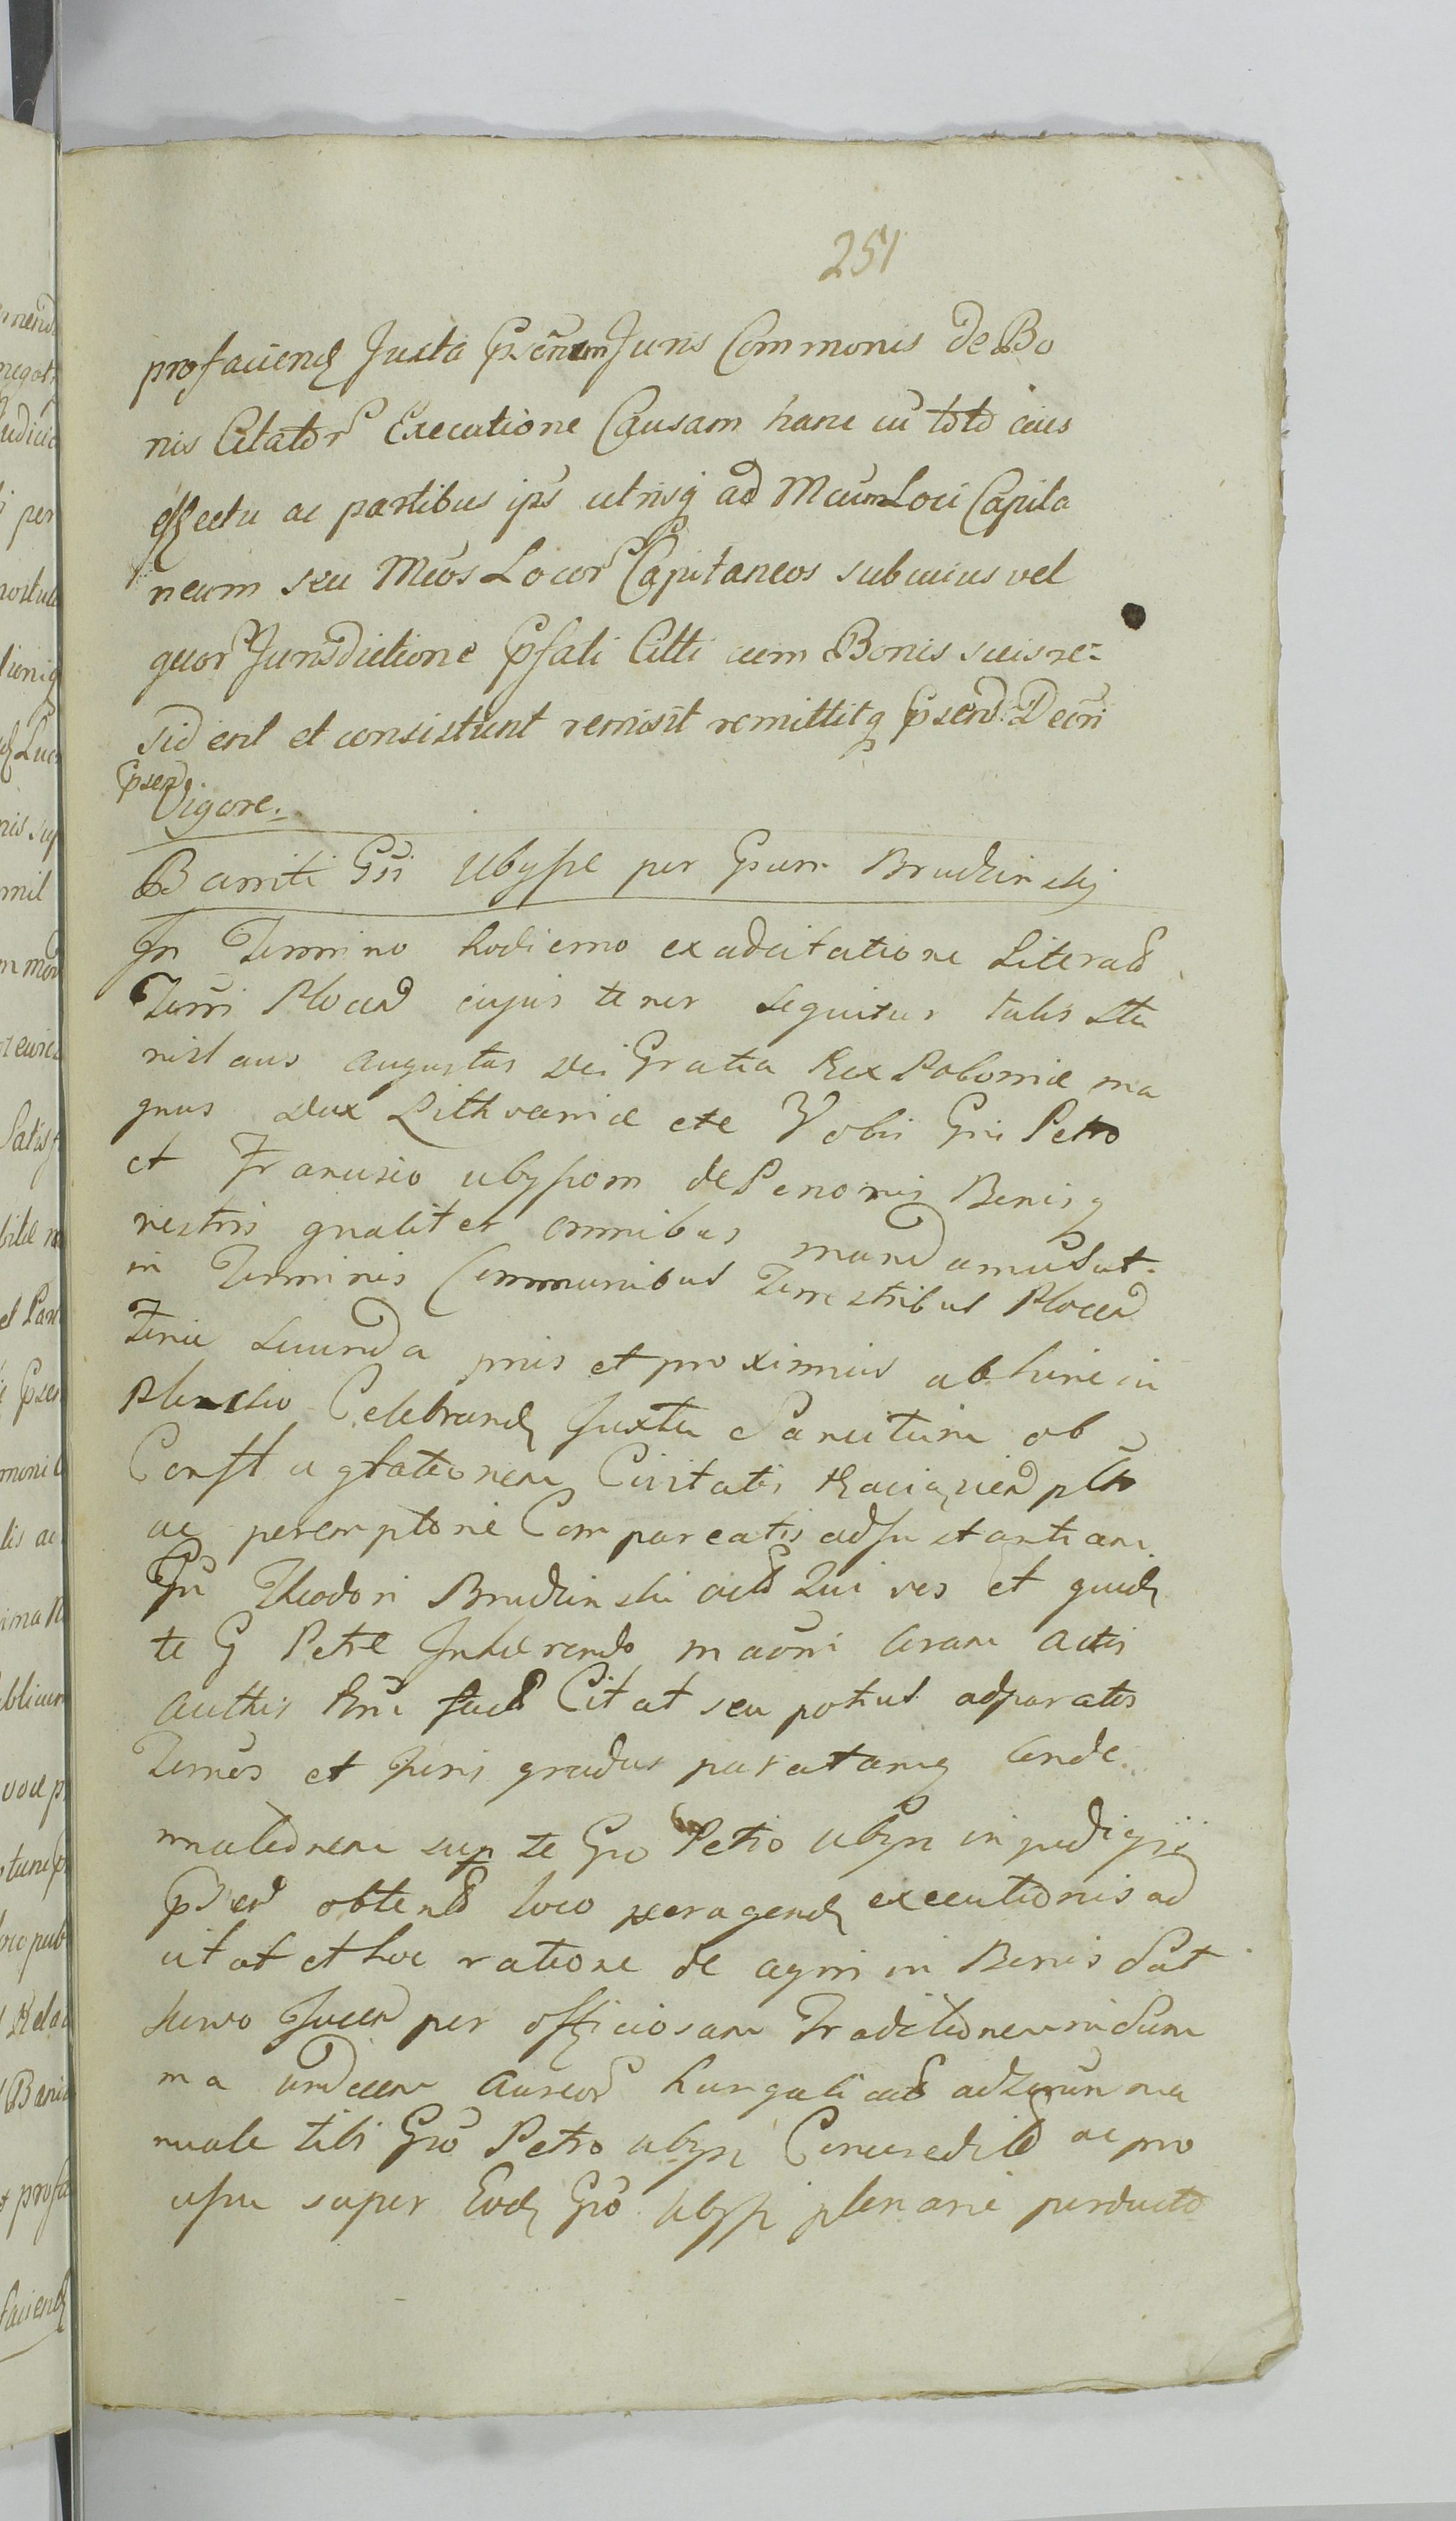 251
profaciend Juxta Psenem Juris Communis de Bo
nis Citator Executione Causam hanc cu toto eius
effectu ac partibus ips utrisq ad Mcum Loci Capita
neum seu Mcos Locor Capitaneos sub cuius vel
quor Jurisdictione Psati Citti cum Bonis suis re-
sident et consistunt remisit remittitq Psend Decri
Psen
Vigore.
Banniti Gsi Ubysze per Gsum Brudzinskij
In Termino hodierno ex adcitatione Literali
Terri Plocen cujus tenor sequitur talis Sta
nislaus Augustus Dei Gratia Rex Poloniæ ma
gnus Dux Lithvaniæ etc Vobis Gni Petro
et Francisco Ubyszom de Personis Bonisq
vestris gnaliter omnibus mandamus ut
in Terminis Communibus Terrestribus Plocen
Terræ Secunda pmis et proximius abhinc in
Plonsko Celebrand Juxta Sancitum ob
Conflagrationem Civitatis Raciązien ptr
ac peremptorie Compareatis ad Instantiam
Gsi Theodori Brudzinski Qui vos et quid
te G Petre Inhærendo
Authis Citat seu potius adparatos
Termos et Juris gradus paratamq Conde
mnationem sup te Gso Petro Ubysz in
Psen obtent loco peragend executionis ad
citat et hoc ratione de agri in Bonis Sut
kowo Jacen per officiosam Traditionem in Sum
ma undecem Aureor hungalical ad
nuale tibi Gso Petro Ubysz ac pro
usu super Eod Gso Ubysz plenarie perducto